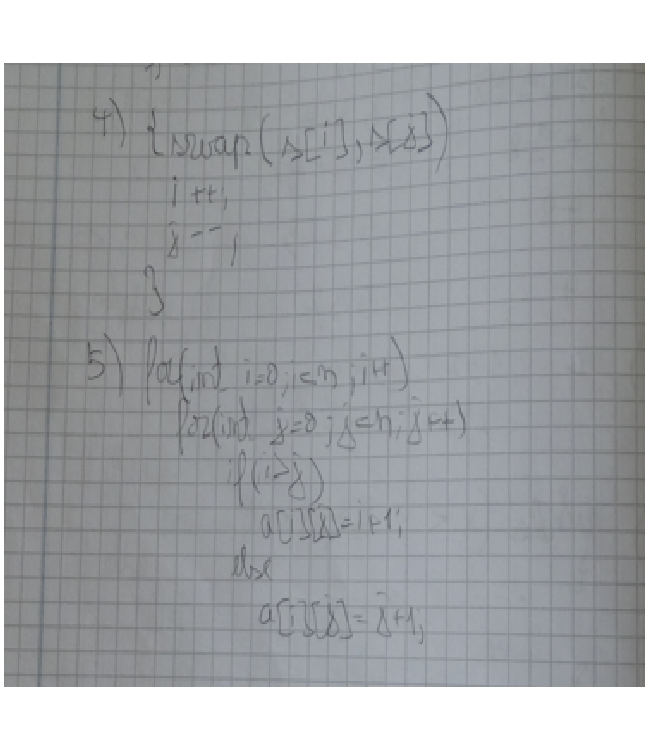 4) {swap(s[i], s[j])
i++;
j--;
}
5) for(int i=0; i<n; i++)
for(int j=0; j<n; j++)
if(i>j)
a[i][j]=i+1;
else
a[i][j]=j+1;